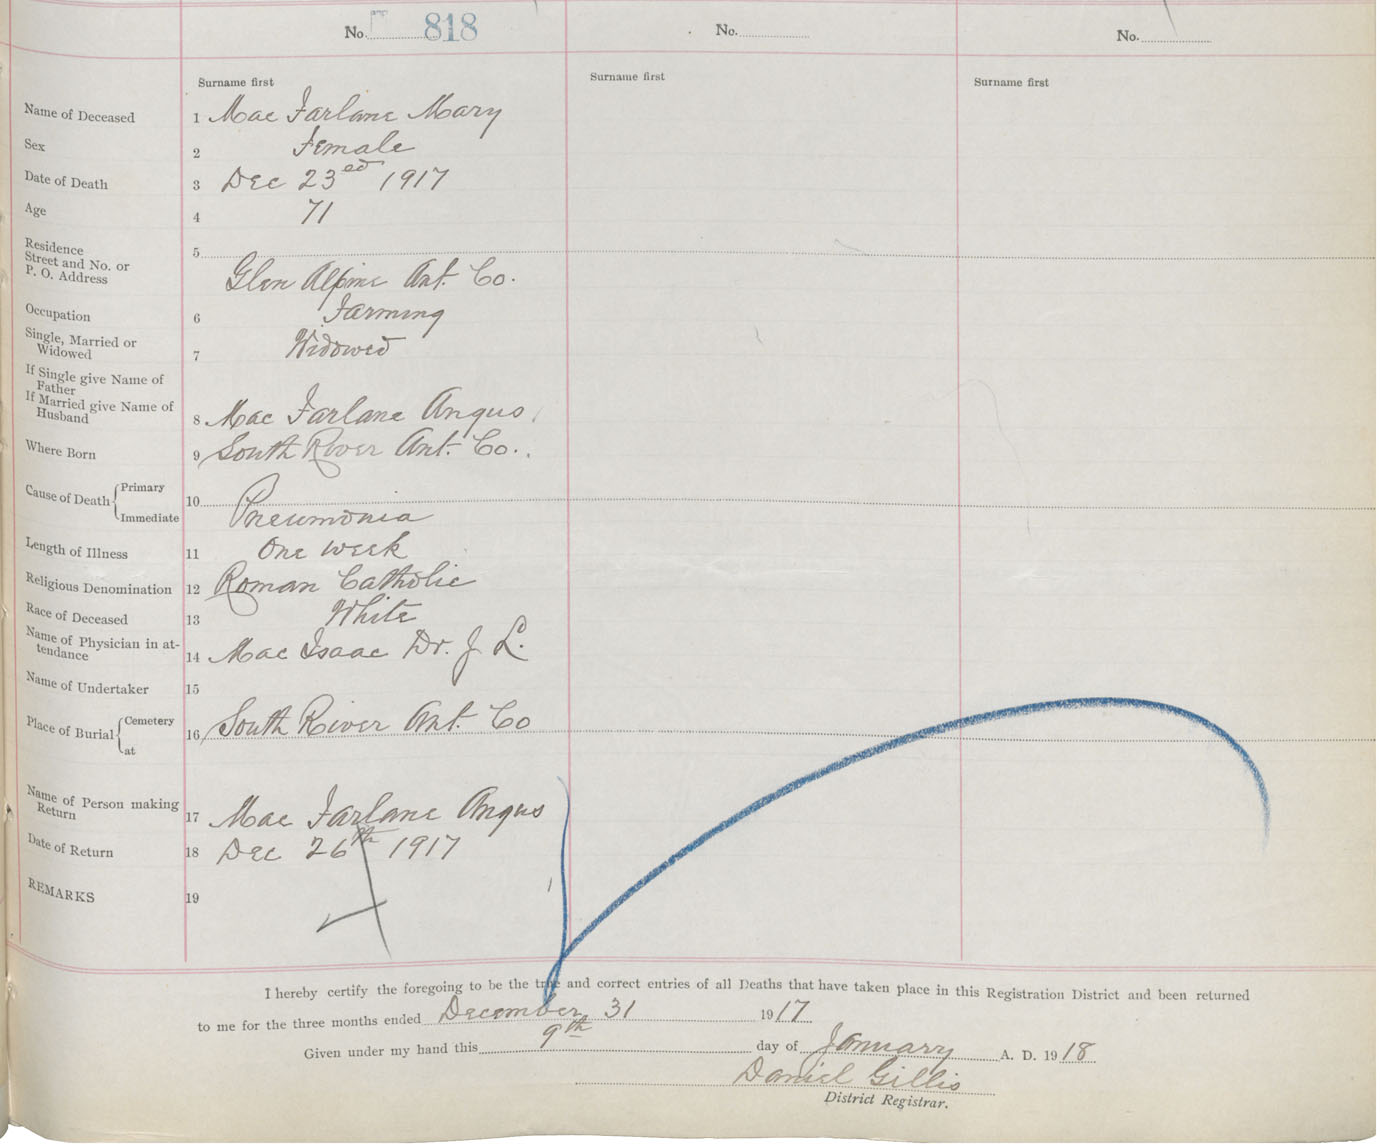 No. 818 No. No.
Surname first Surname first Surname first
Name of Deceased 1 Mac Farlane Mary
Sex 2 Female
Date of Death 3 Dec 23ed 1917
Age 4 71
Residence
Street and No. or
P. O. Address 5 Glen Alpine Ant. Co.
Occupation 6 Farming
Single, Married or
Widowed 7 Widowed
If Single give Name of
Father
If Married give Name of
Husband 8 Mac Farlane Angus
Where Born 9 South River Ant. Co.
Cause of Death { Primary
Immediate 10 Pneumonia
Length of Illness 11 One week
Religious Denomination 12 Roman Catholic
Race of Deceased 13 White
Name of Physician in at-
tendance 14 Mac Isaac Dr. J L.
Name of Undertaker 15
Place of Burial { Cemetery
at 16 South River Ant. Co
Name of Person making
Return 17 Mac Farlane Angus
Date of Return 18 Dec 26th 1917
REMARKS 19
I hereby certify the foregoing to be the true and correct entries of all Deaths that have taken place in this Registration District and been returned
to me for the three months ended December 31 1917
Given under my hand this 9th day of January A. D. 1918
Daniel Gillis
District Registrar.